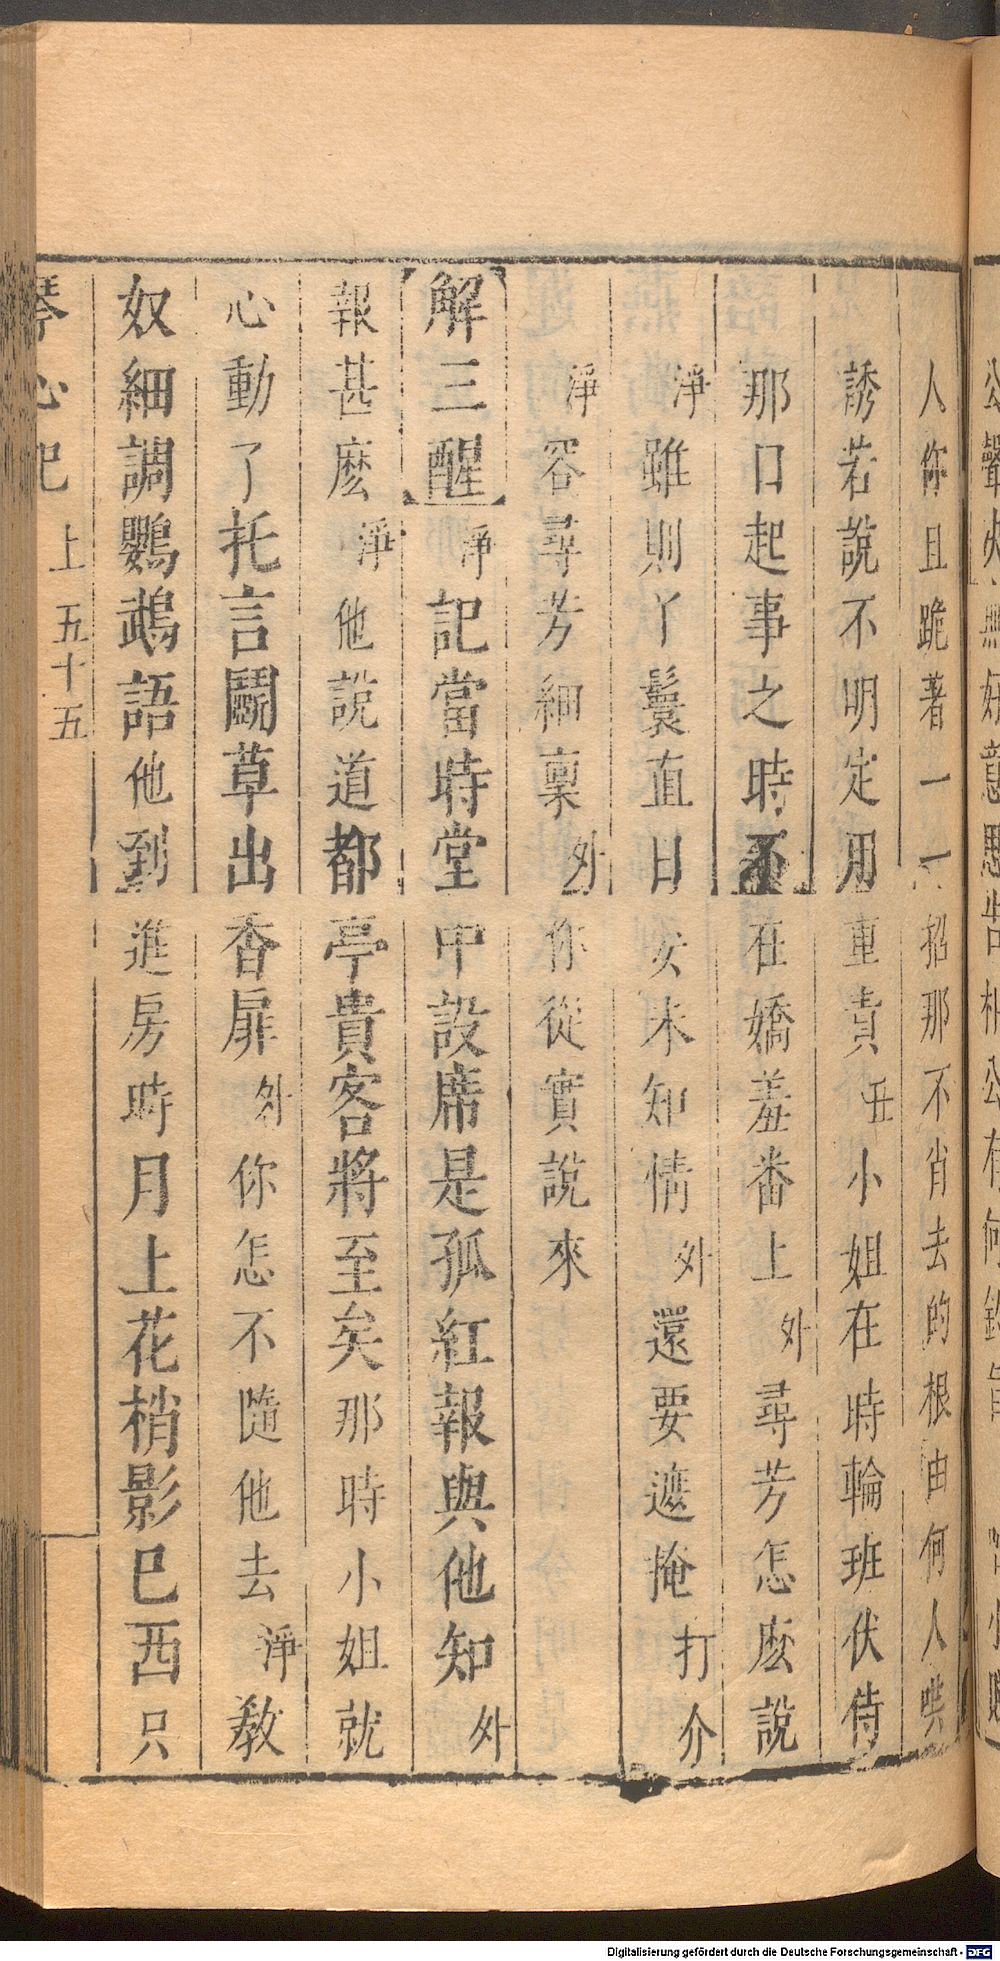 人你且跪著一一招那不肖去的根由何人哄
誘若說不明定用重責丑小姐在時輪班伏侍
那口起事之時不在嬌羞番上外尋芳怎麽說
淨雖則丫鬟直日安未知情外還要遮掩打介
淨容尋芳細稟外你從實說來
【解三醒】淨記當時堂中設席是孤紅報與他知外
報甚麽淨他說道都亭貴客將至矣那時小姐就
心動了托言鬬草出香扉外你怎不隨他去淨教
奴細調鸚鵡語他到進房時月上花梢影巳西只
琴心記 上 五十五
Digitalisierung gefördert durch die Deutsche Forschungsgemeinschaft - DFG